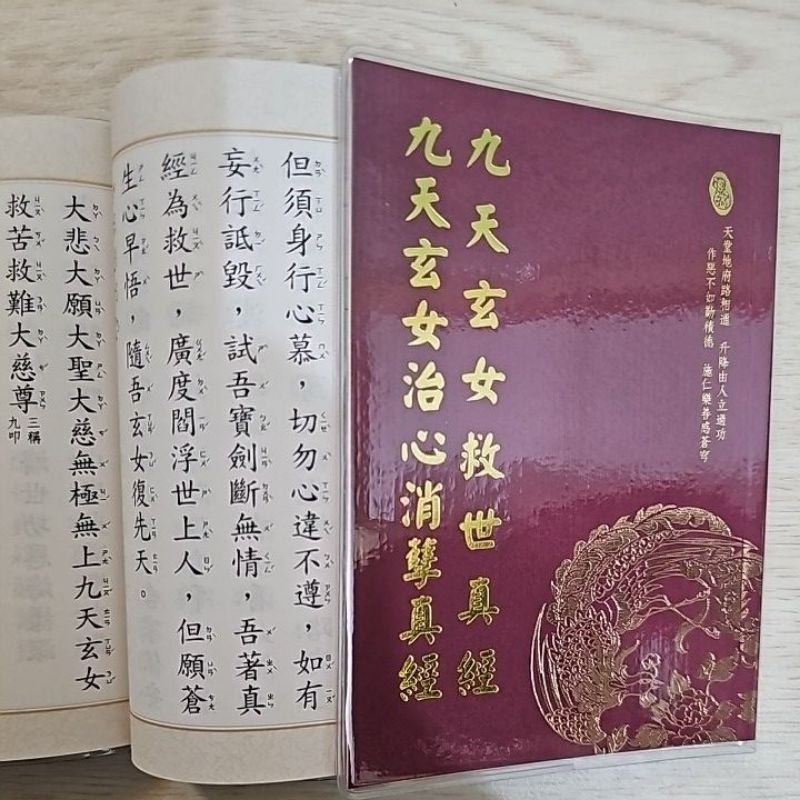 天堂地府路相通 升降由人立過功
作惡不如勤積德 施仁樂善感蒼穹
九天玄女救世真經
九天玄女治心消孽真經
但須身行心慕，切勿心違不遵，如有
妄行詆毀，試吾寶劍斷無情，吾著真
經為救世，廣度閻浮世上人，但願蒼
生心早悟，隨吾玄女復先天。
大悲大願大聖大慈無極無上九天玄女
救苦救難大慈尊 三稱
九叩